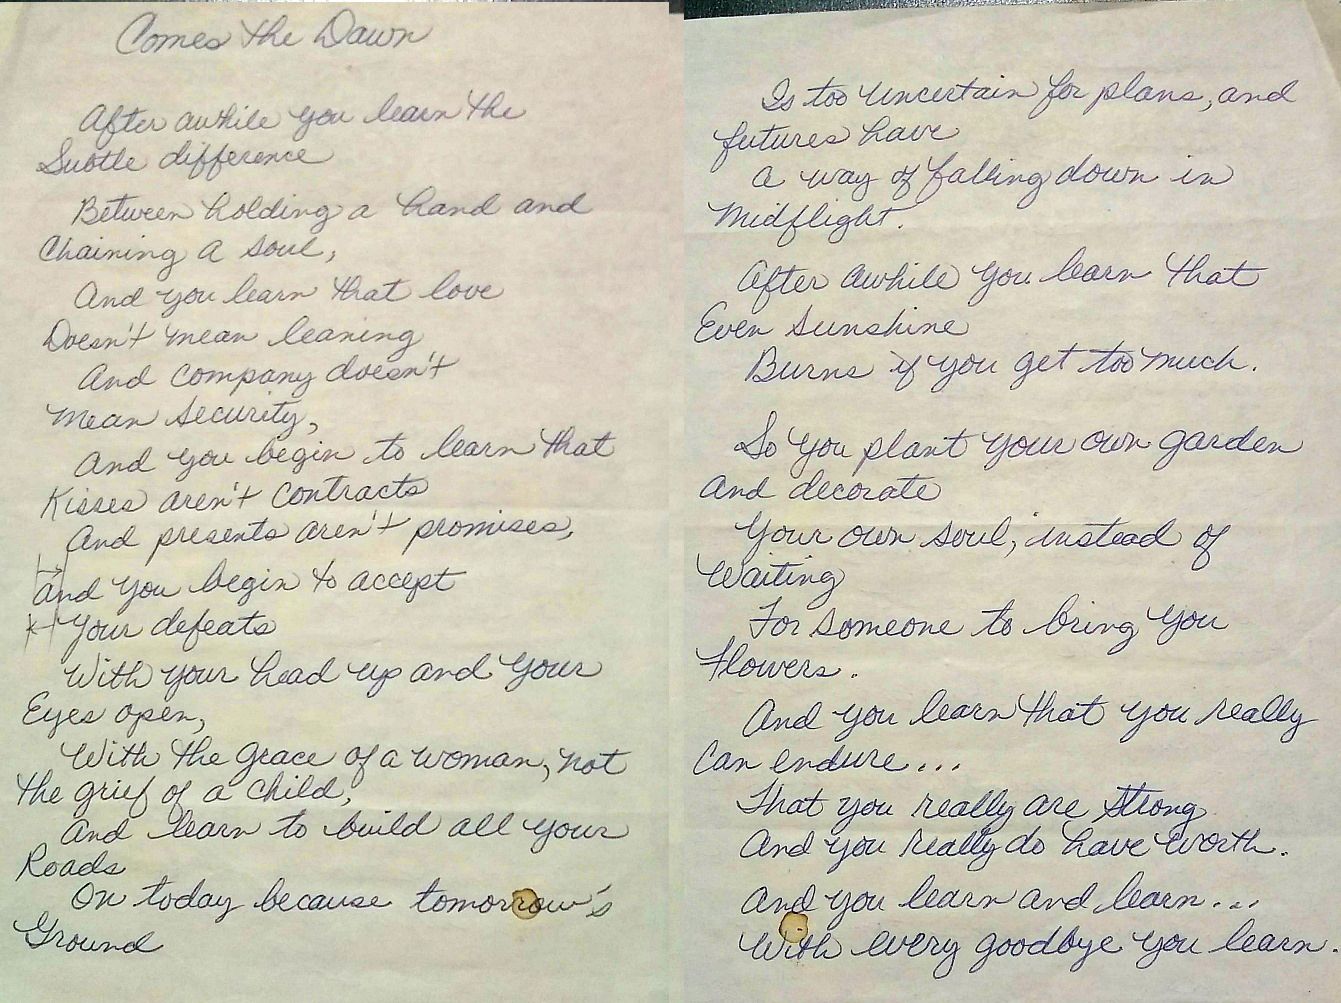 Comes the Dawn
After awhile you learn the
Subtle difference
Between holding a hand and
Chaining a soul,
And you learn that love
Doesn't mean leaning
And company doesn't
Mean security,
And you begin to learn that
Kisses aren't contracts
And presents aren't promises,
and you begin to accept
Your defeats
With your head up and your
Eyes open,
With the grace of a woman, not
the grief of a child,
And learn to build all your
Roads
On today because tomorrow's
Ground
Is too uncertain for plans, and
futures have
a way of falling down in
Midflight.
After awhile you learn that
Even sunshine
Burns if you get too much.
So you plant your own garden
And decorate
Your own soul, instead of
Waiting
For someone to bring you
Flowers.
And you learn that you really
Can endure...
That you really are strong
And you really do have worth.
And you learn and learn...
With every goodbye you learn.